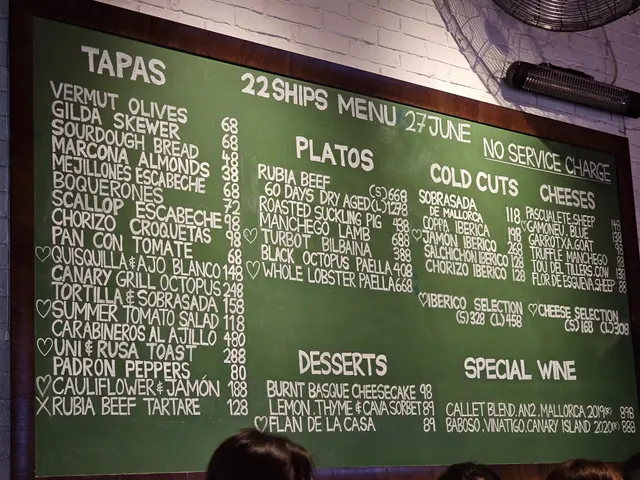 TAPAS
VERMUT OLIVES 68
GILDA SKEWER 68
SOURDOUGH BREAD 48
MARCONA ALMONDS 38
MEJILLONES ESCABECHE 68
BOQUERONES 72
SCALLOP ESCABECHE
CHORIZO CROQUETAS 98
PAN CON TOMATE 68
♡QUISQUILLA & AJO BLANCO 148
CANARY GRILL OCTOPUS 248
TORTILLA & SOBRASADA 158
♡SUMMER TOMATO SALAD 118
CARABINEROS AL AJILLO 480
♡UNI & RUSA TOAST 288
PADRON PEPPERS 80
♡CAULIFLOWER & JAMÓN 188
X RUBIA BEEF TARTARE 128
22 SHIPS MENU 27 JUNE
NO SERVICE CHARGE
PLATOS
RUBIA BEEF (S) 668
60 DAYS DRY AGED (L) 1298
ROASTED SUCKLING PIG
MANCHEGO LAMB
♡TURBOT BILBAINA 688
BLACK OCTOPUS PAELLA 408
♡WHOLE LOBSTER PAELLA 668
COLD CUTS
SOBRASADA
DE MALLORCA 118
COPPA IBERICA 198
♡JAMÓN IBERICO 268
SALCHICHON IBERICO 128
CHORIZO IBERICO 128
♡IBERICO SELECTION
(S) 328 (L) 458
CHEESES
PASCUALETE.SHEEP 149
♡GAMONEU. BLUE 138
GARROTXA.GOAT
TRUFFLE MANCHEGO 88
TOU DEL TILLERS.COW
FLOR DE ESGUEVA.SHEEP 88
♡CHEESE SELECTION
(S) 168 (L) 308
DESSERTS
BURNT BASQUE CHEESECAKE 98
LEMON, THYME & CAVA SORBET 89
♡FLAN DE LA CASA 89
SPECIAL WINE
CALLET BLEND. AN2. MALLORCA 2019 898
BABOSO. VINATIGO. CANARY ISLAND 2020 888